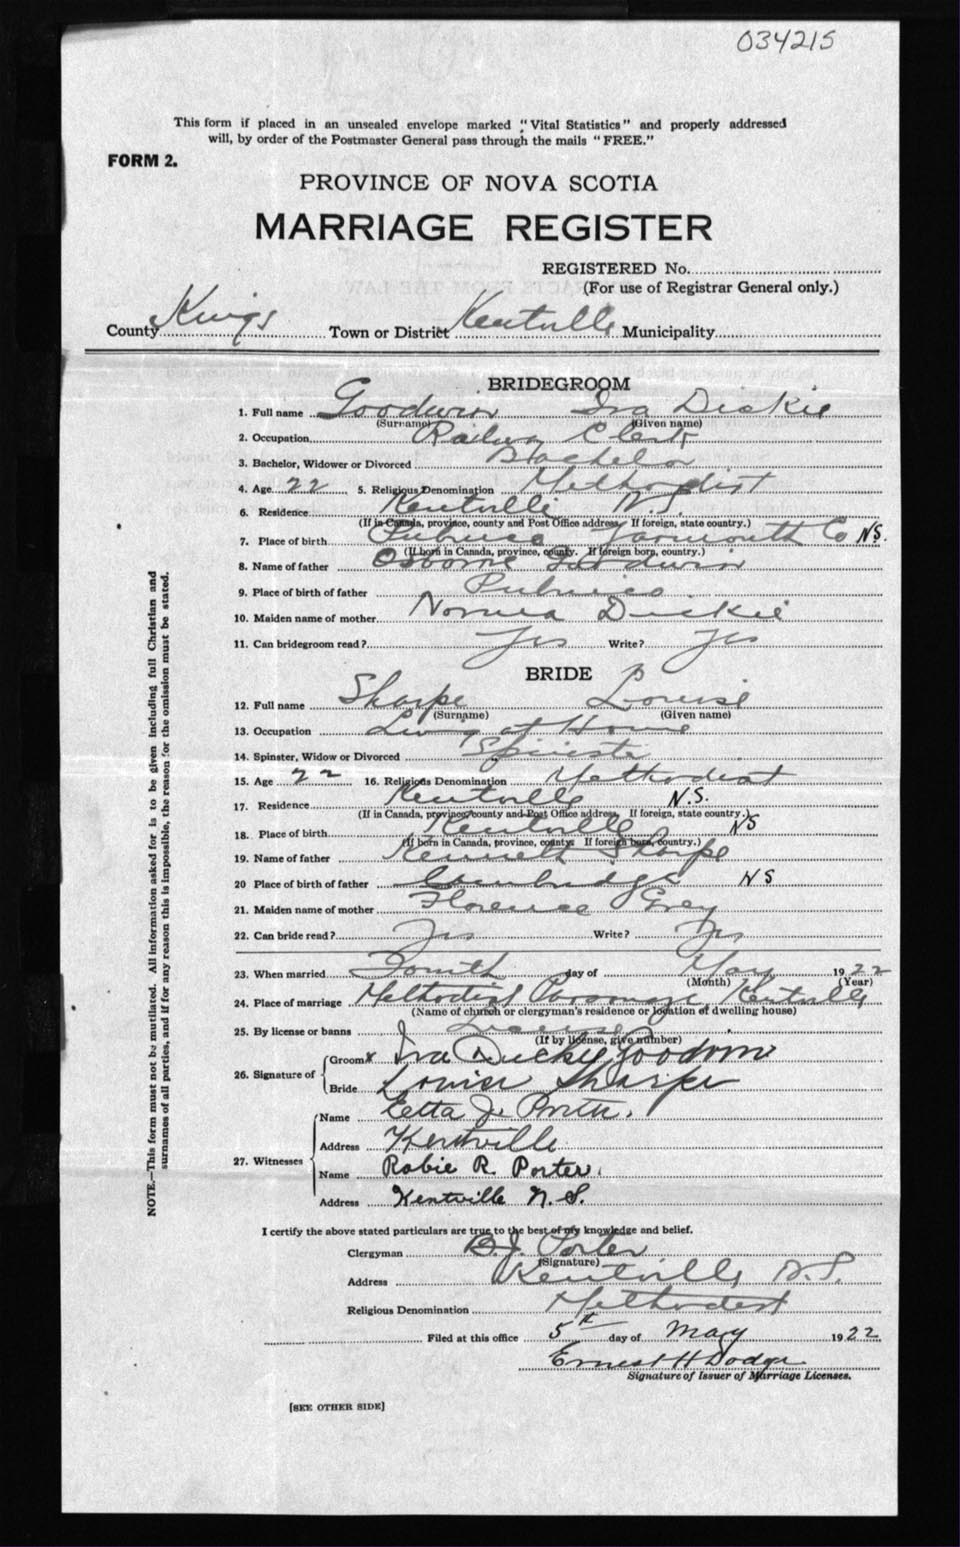 034215
This form if placed in an unsealed envelope marked "Vital Statistics" and properly addressed
will, by order of the Postmaster General pass through the mails "FREE."
FORM 2.
PROVINCE OF NOVA SCOTIA
MARRIAGE REGISTER
REGISTERED No.
(For use of Registrar General only.)
County Kings Town or District Kentville Municipality
BRIDEGROOM
1. Full name Goodwin Ira Dickie
(Surname) (Given name)
2. Occupation Railway Clerk
3. Bachelor, Widower or Divorced Bachelor
4. Age 22 5. Religious Denomination Methodist
6. Residence Kentville N.S.
(If in Canada, province, county and Post Office address. If foreign, state country.)
7. Place of birth Pubnico Yarmouth Co NS.
(If born in Canada, province, county. If foreign born, country.)
8. Name of father Osborne Goodwin
9. Place of birth of father Pubnico
10. Maiden name of mother Norma Dickie
11. Can bridegroom read? Yes Write? Yes
BRIDE
12. Full name Sharpe Louise
(Surname) (Given name)
13. Occupation Living at Home
14. Spinster, Widow or Divorced Spinster
15. Age 22 16. Religious Denomination Methodist
17. Residence Kentville N.S.
(If in Canada, province, county and Post Office address. If foreign, state country.)
18. Place of birth Kentville NS
(If born in Canada, province, county. If foreign born, country.)
19. Name of father Kenneth Sharpe
20 Place of birth of father Cambridge NS
21. Maiden name of mother Florence Grey
22. Can bride read? Yes Write? Yes
23. When married Fourth day of May 1922
(Month) (Year)
24. Place of marriage Methodist Parsonage, Kentville
(Name of church or clergyman's residence or location of dwelling house)
25. By license or banns License
(If by license, give number)
26. Signature of
Groom x Ira Dickie Goodwin
Bride Louise Sharpe
27. Witnesses
Name Etta J. Porter.
Address Kentville
Name Robie R. Porter.
Address Kentville N.S.
I certify the above stated particulars are true to the best of my knowledge and belief.
Clergyman B.J. Porter
(Signature)
Address Kentville, N.S.
Religious Denomination Methodist
Filed at this office 5th day of May 1922
Ernest H Dodge
Signature of Issuer of Marriage Licenses.
[SEE OTHER SIDE]
NOTE.—This form must not be mutilated. All information asked for is to be given including full Christian and
surnames of all parties, and if for any reason this is impossible, the reason for the omission must be stated.